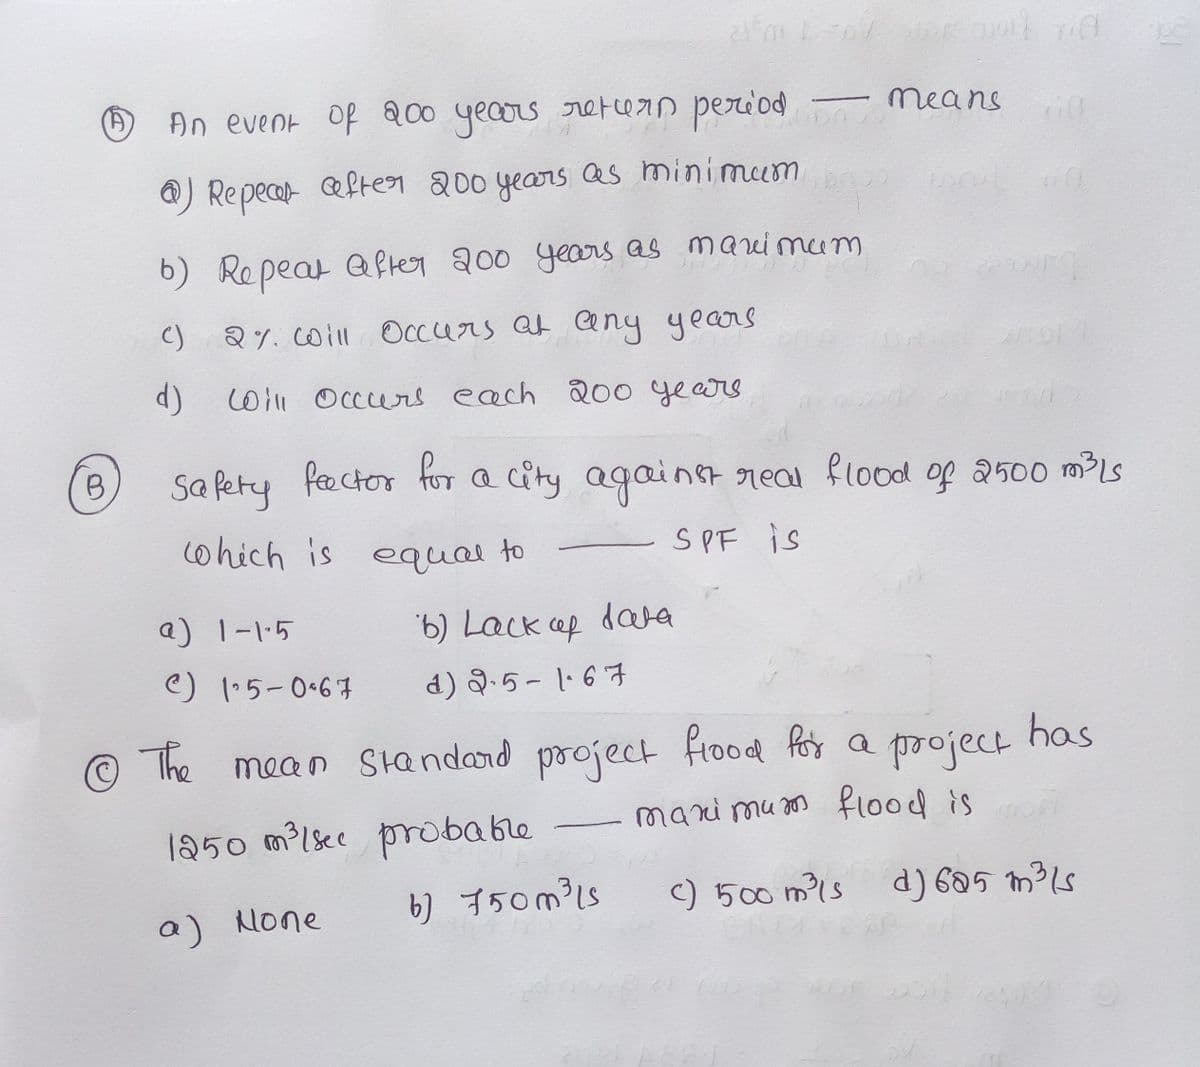 (A) An event of 200 years return period — means
a) Repeat after 200 years as minimum
b) Repeat after 200 years as maximum
c) 2%. will Occurs at any years
d) will Occurs each 200 years
(B) Safety factor for a city against real flood of 2500 m³/s
which is equal to — SPF is
a) 1-1.5 b) Lack of data
c) 1.5-0.67 d) 2.5-1.67
(C) The mean standard project flood for a project has
1250 m³/sec probable — maximum flood is
a) None b) 750m³/s c) 500 m³/s d) 625 m³/s